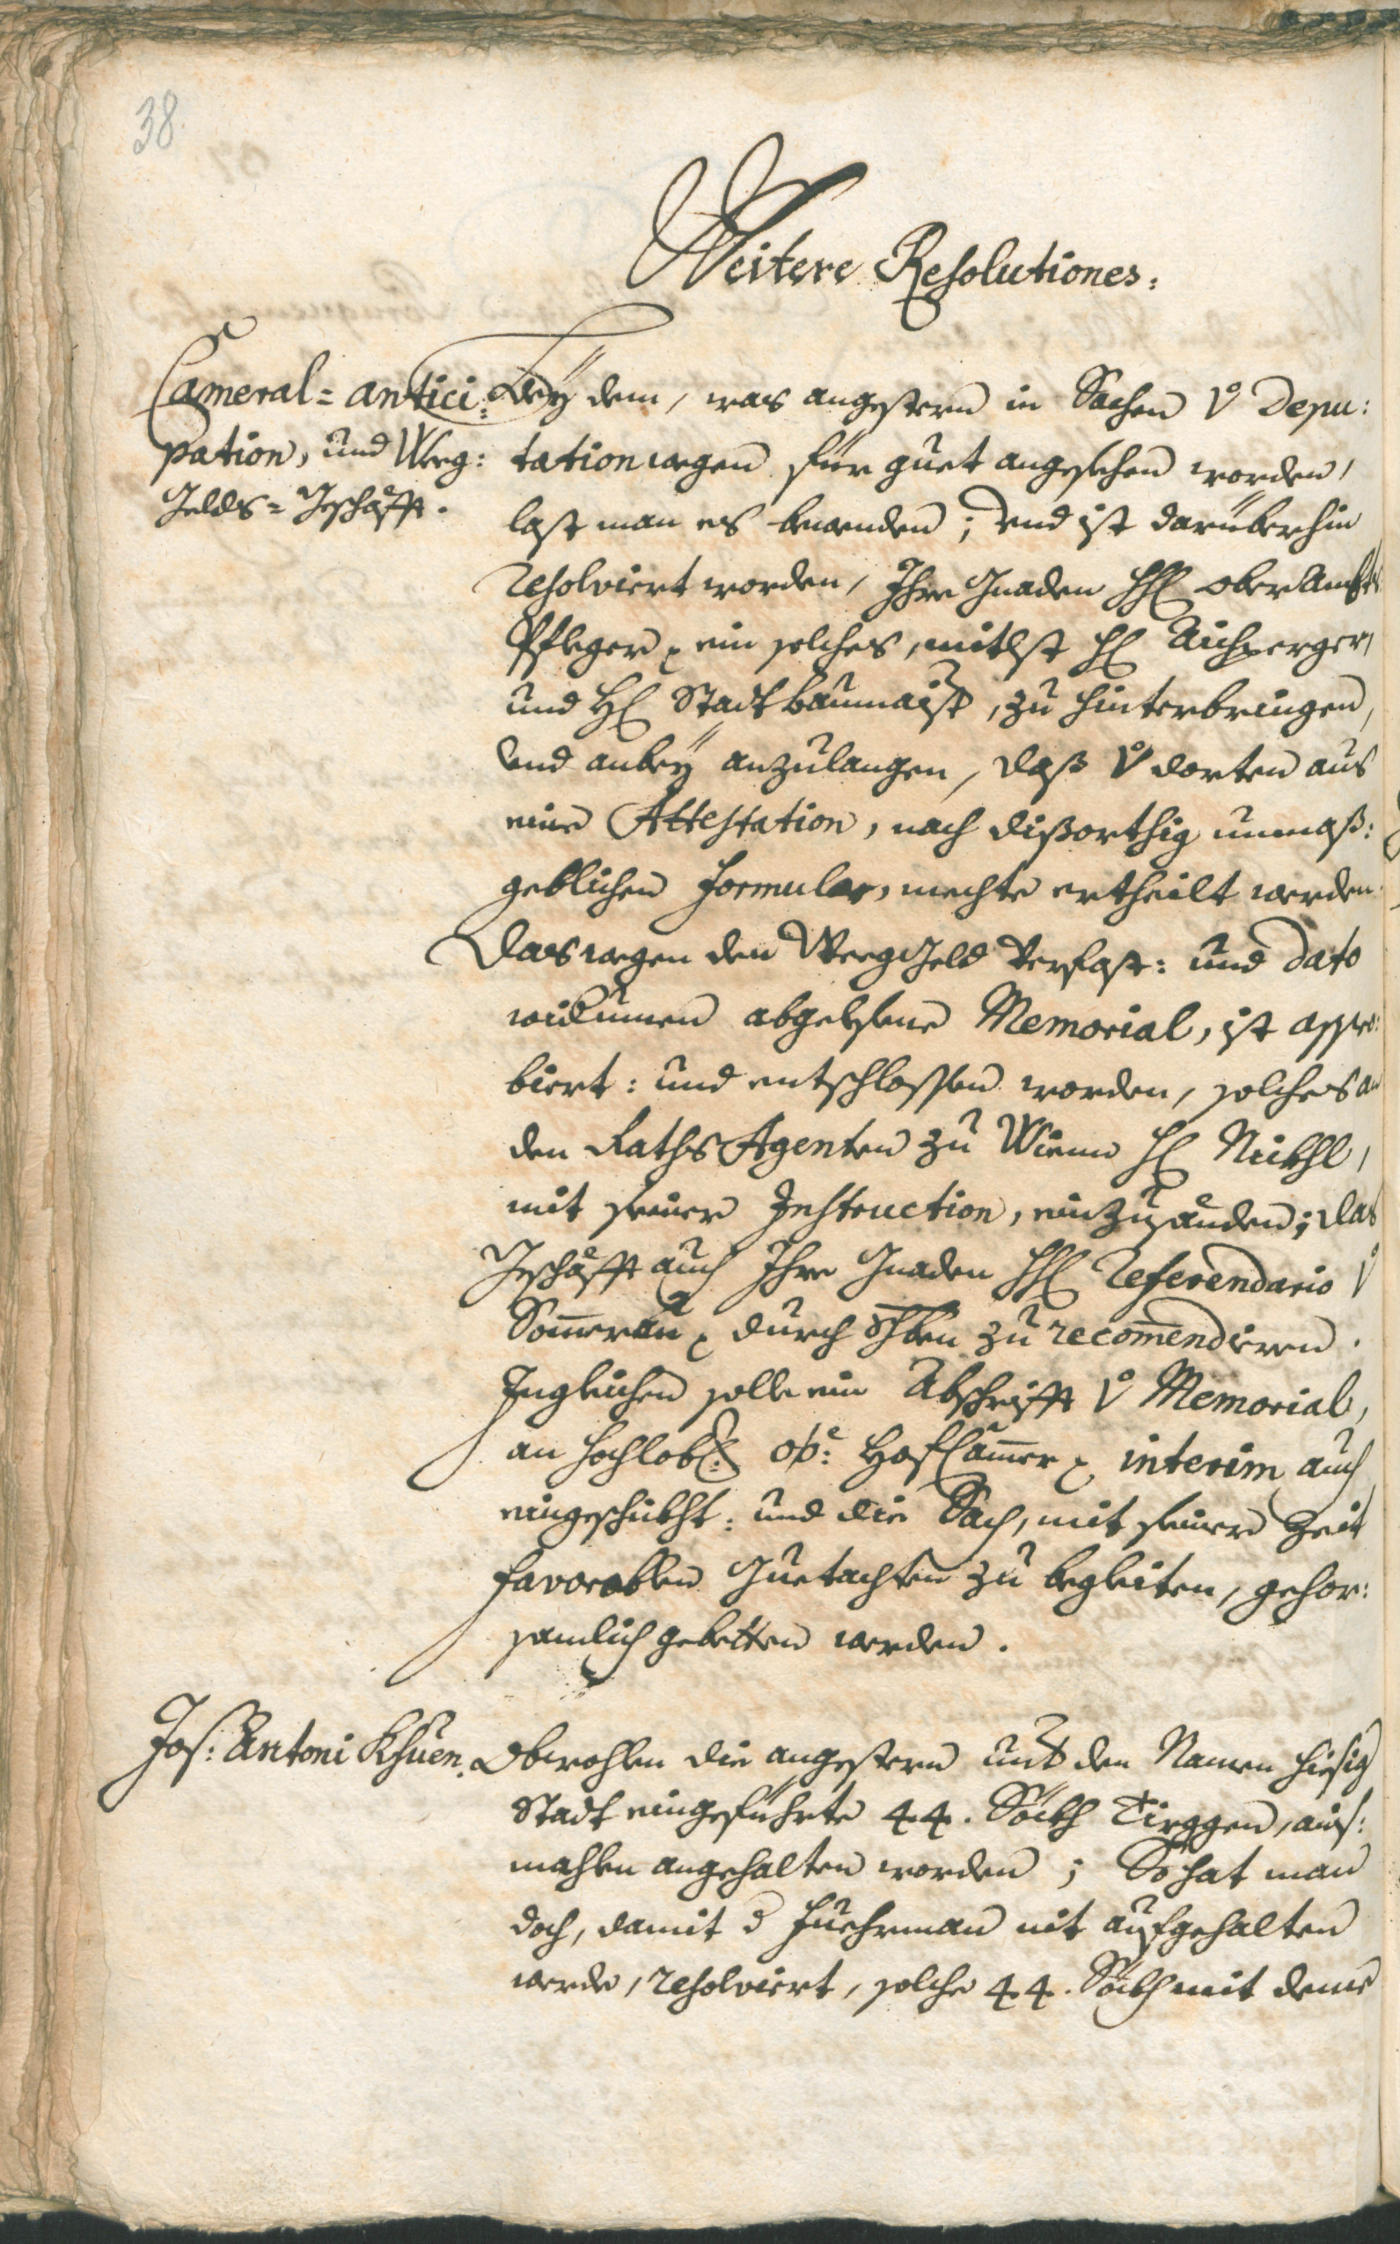 38.
Weitere Resolutiones:
Cameral= antici:
pation, und Weeg:
Gelds= Geschäfft.
Beÿ dem, was angestern in Sachen V Depu:
tation wegen für guet angesehen worden,
last man es bewenden; Vnd ist darüberhin
resolviert worden, Ihro Gnaden HH oberAmbts
Pfleger ein solches, mitlst H Aichperger,
und H Stadtbaumaistr, zu hinterbringen,
vnd anbeÿ anzulangen, daß V dorten aus
eine Attestation, nach dißorthig unmaß:
geblichen Formular, mechte ertheilt werden.
Das wegen den Weeg Geld verfast: und dato
widumen abgelesene Memorial, ist appro:
biert: und entschlossen worden, solches an
den Raths Agenten zu Wienn H Nickhl,
mit seiner Instruction, einzusänden; das
Geschäfft auch Ihro Gnaden HH Referendario V
Somerau durch zu recomendieren.
Ingleichen solle ein Abschrifft V Memorial,
an hochlobl: oö: Hof Camer interim auch
eingeschickht: und die Sach, mit seiner Zeit
favorablen Guetachten zu begleiten, gehor:
samlich gebetten werden.
Jos: Antoni Khuen.
Obwohlen die angestern unter den Namen hiesig
Stadt eingeführte 44. Säckh Tirggen, auf:
mahlen angehalten worden; So hat man
doch, damit d Fuehrman nit aufgehalten
werde, resolviert, solche 44. Säckh mit deme